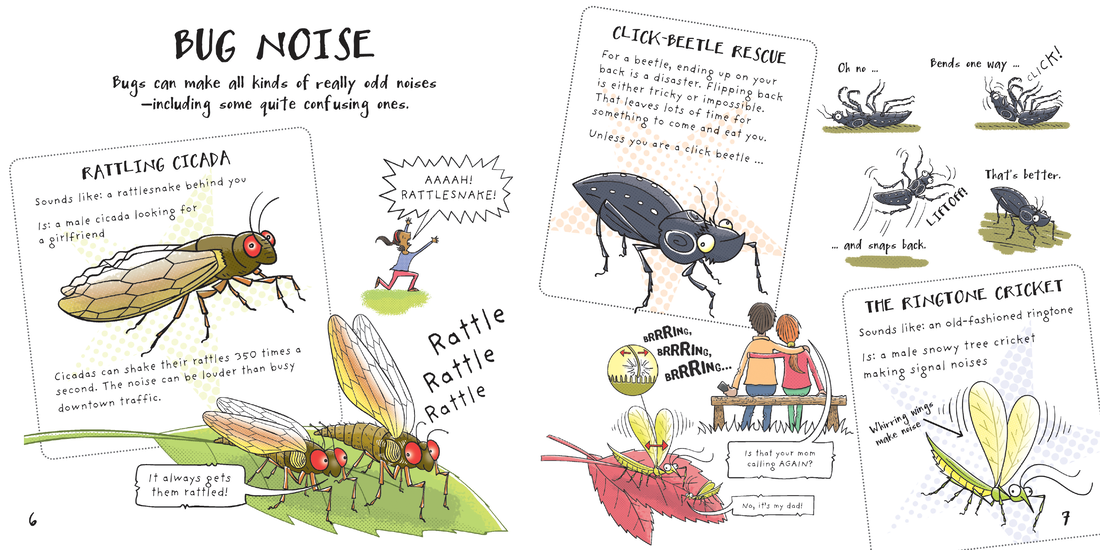 BUG NOISE
Bugs can make all kinds of really odd noises
—including some quite confusing ones.
RATTLING CICADA
Sounds like: a rattlesnake behind you
Is: a male cicada looking for
a girlfriend
Cicadas can shake their rattles 350 times a
second. The noise can be louder than busy
downtown traffic.
AAAAH!
RATTLESNAKE!
Rattle
Rattle
Rattle
It always gets
them rattled!
6
CLICK-BEETLE RESCUE
For a beetle, ending up on your
back is a disaster. Flipping back
is either tricky or impossible.
That leaves lots of time for
something to come and eat you.
Unless you are a click beetle ...
Oh no ...
Bends one way ...
CLICK!
... and snaps back.
LIFTOFF!
That's better.
BRRRING,
BRRRING,
BRRRING...
Is that your mom
calling AGAIN?
No, it's my dad!
THE RINGTONE CRICKET
Sounds like: an old-fashioned ringtone
Is: a male snowy tree cricket
making signal noises
Whirring wings
make noise
7